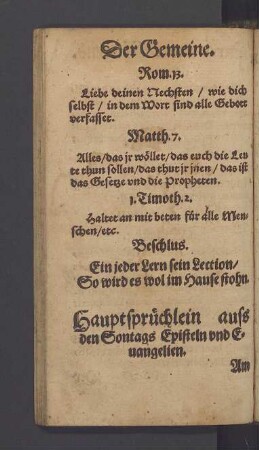 Der Gemeine.
Rom. 13.
Liebe deinen Nechsten / wie dich
selbst / in dem Wort sind alle Gebott
verfasset.
Matth. 7.
Alles / das jr wöllet / das euch die Leu
te thun sollen / das thut jr jnen / das ist
das Gesetze vnd die Propheten.
1. Timoth. 2.
Haltet an mit beten für alle Men-
schen / etc.
Beschlus.
Ein jeder Lern sein Lection /
So wird es wol im Hause stohn.
Hauptsprüchlein auss
den Sontags Episteln vnd E-
uangelien.
Am